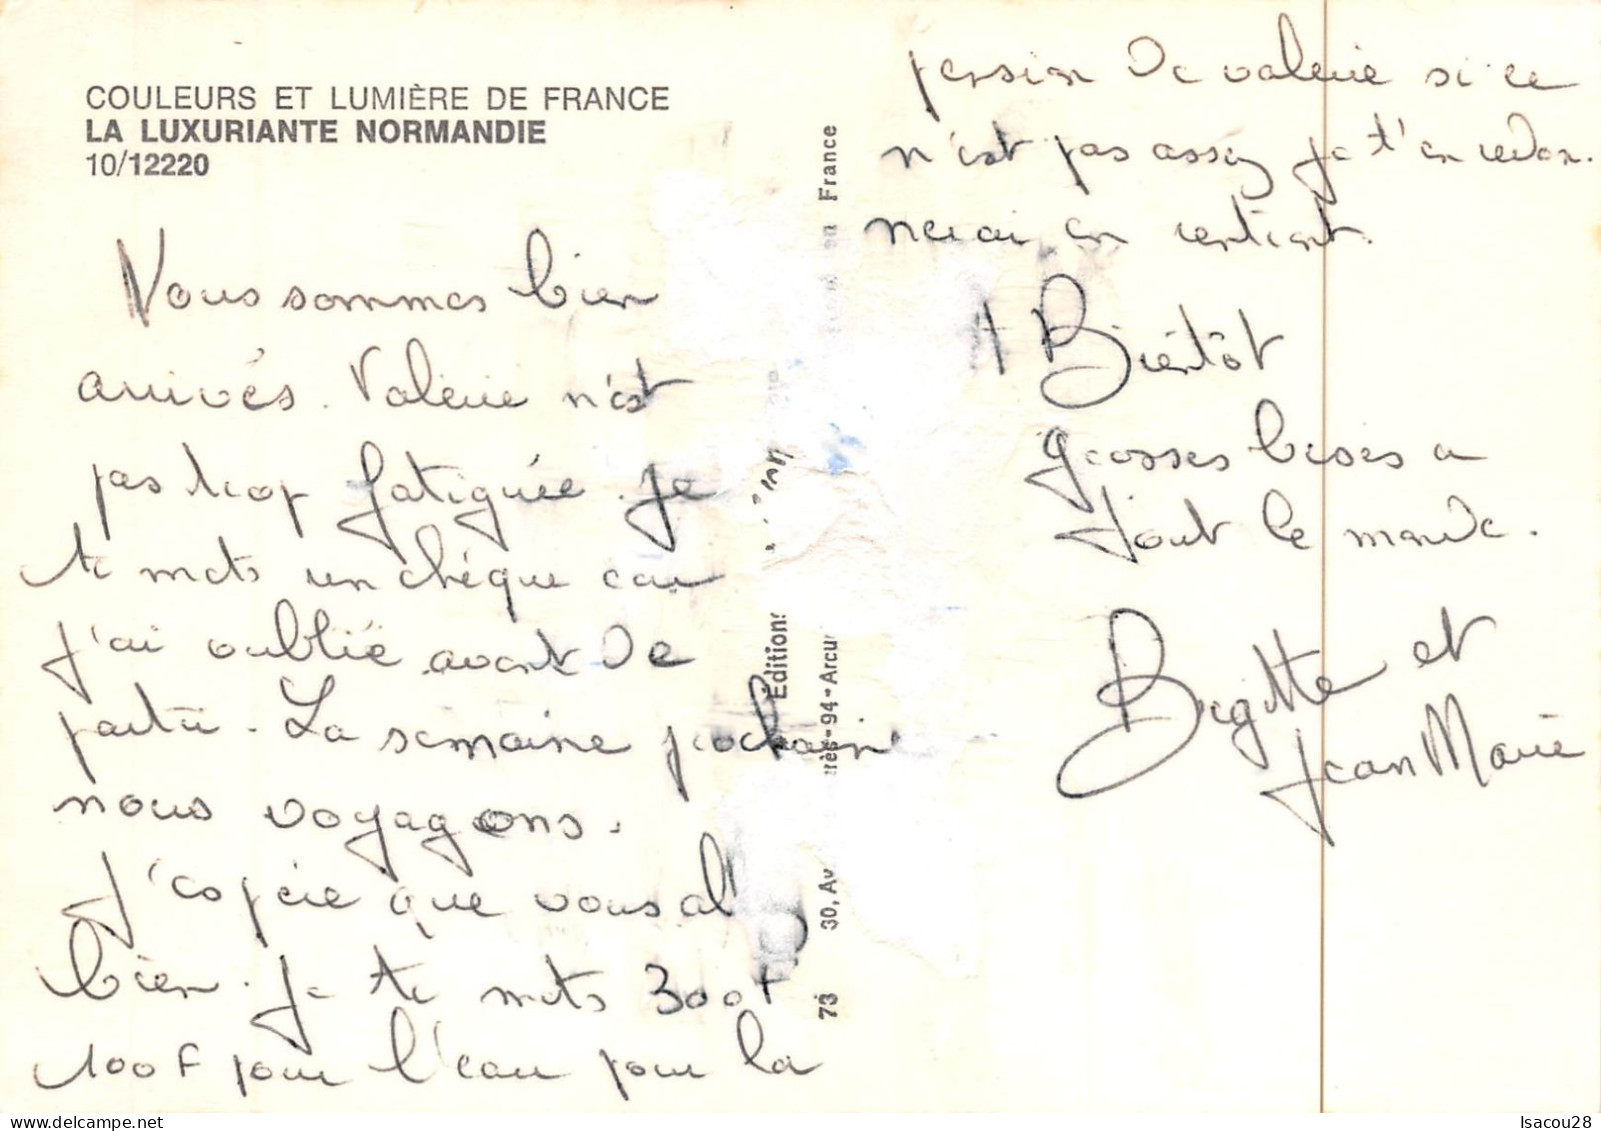 COULEURS ET LUMIÈRE DE FRANCE
LA LUXURIANTE NORMANDIE
10/12220
Nous sommes bien
arrivés. Valérie n'est
pas trop fatiguée. Je
te mets un chéque car
j'ai oublié avant de
partir. La semaine prochaine
nous voyagons.
J'espére que vous al
bien. Je te mets 300F
100F pour l'eau pour la
pension de valerie si ce
n'est pas assez je t'en redon.
nerai en rentrant.
A Bientôt
grosses bises a
tout le monde.
Brigitte et
Jean Marie
Edition
France
30, Av
rès-94-Arcu
73
Isacou28